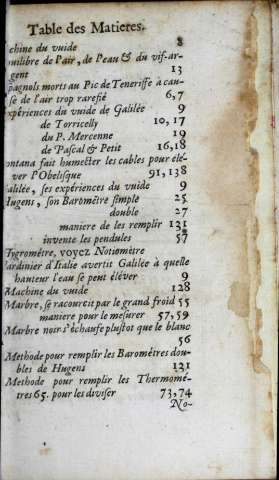 Table des Matieres.
chine du vuide 8
quilibre de l'air, de l'eau & du vif-ar-
gent 13
pagnols morts au Pic de Teneriffe à cau-
se de l'air trop rarefié 6,7
xpériences du vuide de Galilée 9
de Torricelly 10,17
du P. Mercenne 19
de Pascal & Petit 16,18
ontana fait humecter les cables pour éle-
ver l'Obelisque 91,138
alilée, ses expériences du vuide 9
Hugens, son Baromêtre simple 25
double 27
maniere de les remplir 131
invente les pendules 57
Hygrometre, voyez Notiomètre
Jardinier d'Italie avertit Galilée à quelle
hauteur l'eau se peut éléver 9
Machine du vuide 128
Marbre, se racourcit par le grand froid 55
maniere pour le mesurer 57,59
Marbre noir s'échaufe plustot que le blanc
56
Methode pour remplir les Baromêtres dou-
bles de Hugens 131
Methode pour remplir les Thermomé-
tres 65. pour les diviser 73,74
No-